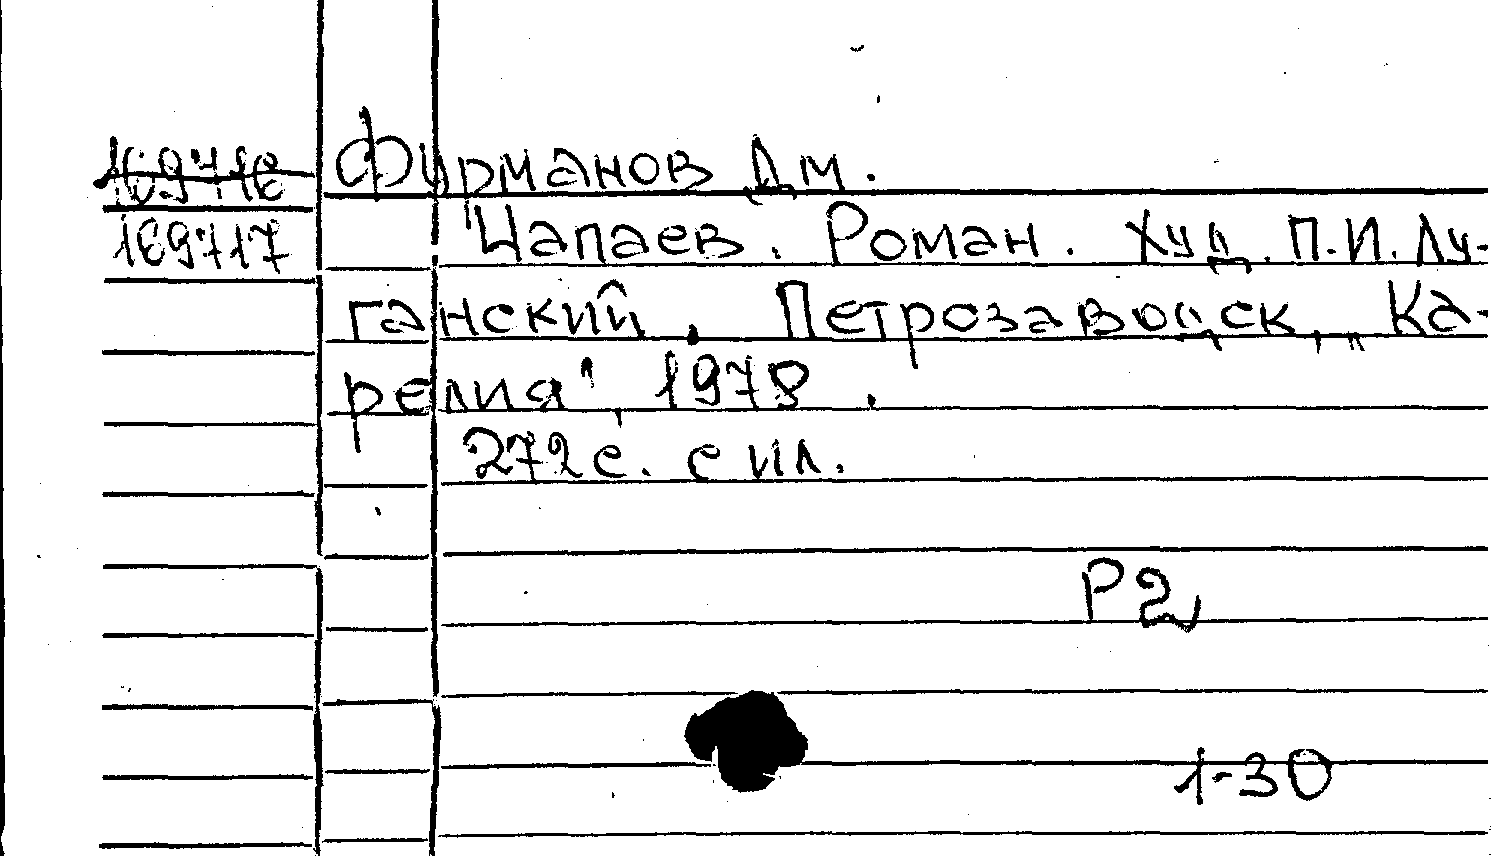 169716 Фурманов Дм.
169717 Чапаев. Роман. Худ. П.И. Лу-
ганский. Петрозаводск, „Ка-
релия", 1978.
272 с. с ил.
Р2
1-30